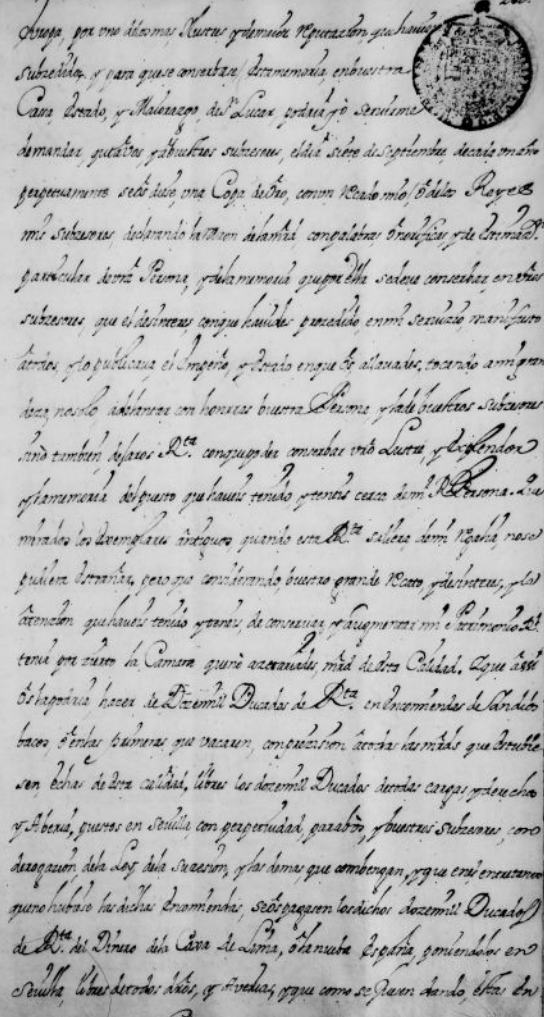 Arroga, por uno de los mas Ilustres y de maior reputazion, que havien
subzedido, y para que se conserbase esta memoria, en buestra
Cassa, Estado, y Maiorazgo, de Sn. Lucar, podria yo serbirme
demandar, que a vos y a buestros subzesores, el dia siete de septiembre, de cada un año
perpetuamente se os diese, una Copa de oro, con un recado mio, o de los Reyes
mis subzesores, declarando la razon de la mrd. con palabras onorificas, y de estimazon.
particular de vra Persona, y de la memoria que por ella se deve conserbar, en vros
subzesores, que el desinteres con que haveis procedido, en mi servizio, manifiesto
a todos, y lo publicava el Empeño, y Estado en que os allavades, tocando a mi gran
deza, no solo adelantar con honrras buestra Persona y la de buestros subzesores
sino tambien, de faros Rta. con que poder conserbar vro Lustre, y Esplendor
y la memoria del puesto que haveis tenido, y teneis cerca de mi Rl. Persona. Que
mirados los Exemplares antiguos, quando esta Rta saliera de mi regalia, no se
pudiera estrañar, pero que considerando, buestro grande recato, y desinteres, y la
atenzion que haveis tenido y teneis, de conservar, y augmentar mi Patrimonio Rl.
tenia por zierto la Camara que no azetariades, mrd. de esta Calidad. Y que assi
os la podria hazer de Doze mil Ducados de Rta. en encomiendas de Yndios
bacos, o en las primeras que vacaren, con prezision a todas las mrds que estubie
sen, echas de esta calidad, libres los doze mil Ducados de todas cargas, y derechos
y Aberia, puestos en Sevilla, con perpetuidad, para bos, y buestros subzesores, con
derogazion, de la Ley, de la suzesion, y las demas que combengan, y que en el entretanto
que no hubiese las dichas Encomiendas, se os pagasen los dichos doze mil Ducados
de Rta. del Dinero de la Caxa de Lima, o la nueba España, poniendolos en
Sevilla, libres de todos dros, y Averias, y que como se fuesen dando, estas En